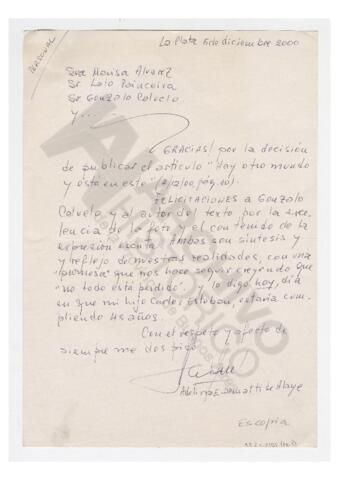 La Plata 6 de diciembre 2000
PERSONAL
Sra Marisa Alvarez
Sr. Lalo Painceira
Sr Gonzalo Calvelo
y ...
GRACIAS! por la decisión
de publicar el artículo "Hay otro mundo
y está en este" (2/12/00, pág. 10).
FELICITACIONES a Gonzalo
Calvelo, y al autor del texto por la exce-
lencia de la foto y el contenido de la
expresión escrita. Ambas son síntesis y
y reflejo de nuestras realidades, con una
"promesa" que nos hace seguir creyendo que
"no todo está perdido". y lo digo hoy, día
en que mi hijo Carlos Esteban, estaría cum-
pliendo 45 años.
Con el respeto y afecto de
siempre me despido
Adelina E. Dematti de Alaye
Es copia